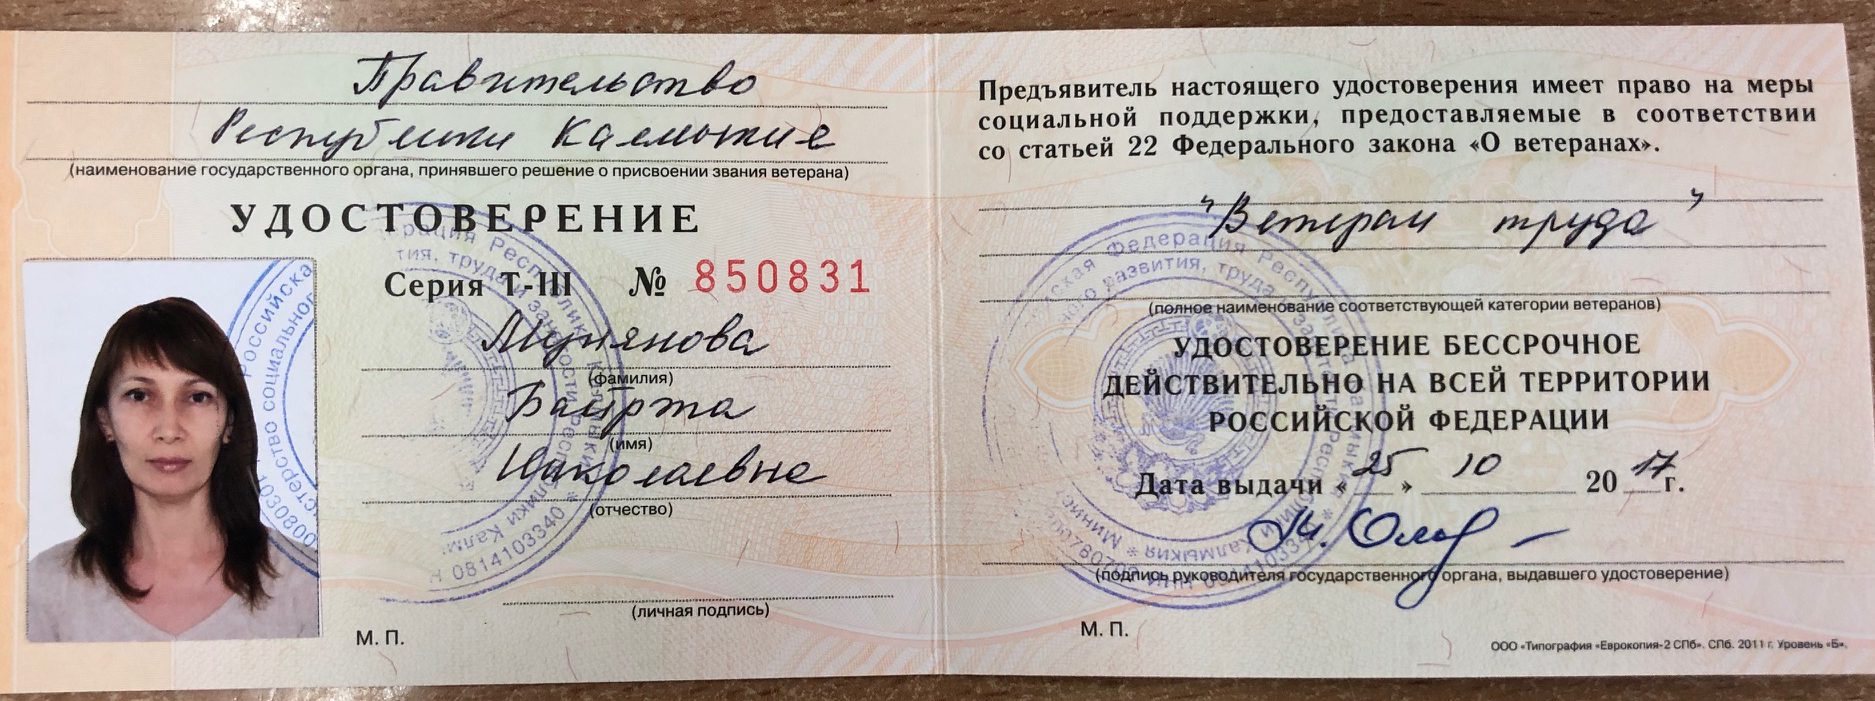 Правительство
Республики Калмыкия
(наименование государственного органа, принявшего решение о присвоении звания ветерана)
УДОСТОВЕРЕНИЕ
Серия Т-III № 850831
Мунянова
(фамилия)
Баирта
(имя)
Николаевна
(отчество)
(личная подпись)
М. П.
Предъявитель настоящего удостоверения имеет право на меры
социальной поддержки, предоставляемые в соответствии
со статьей 22 Федерального закона «О ветеранах».
"Ветеран труда"
(полное наименование соответствующей категории ветеранов)
УДОСТОВЕРЕНИЕ БЕССРОЧНОЕ
ДЕЙСТВИТЕЛЬНО НА ВСЕЙ ТЕРРИТОРИИ
РОССИЙСКОЙ ФЕДЕРАЦИИ
Дата выдачи «25» 10 2017 г.
(подпись руководителя государственного органа, выдавшего удостоверение)
М. П.
ООО «Типография «Еврокопия-2 СПб». СПб. 2011 г. Уровень «Б».